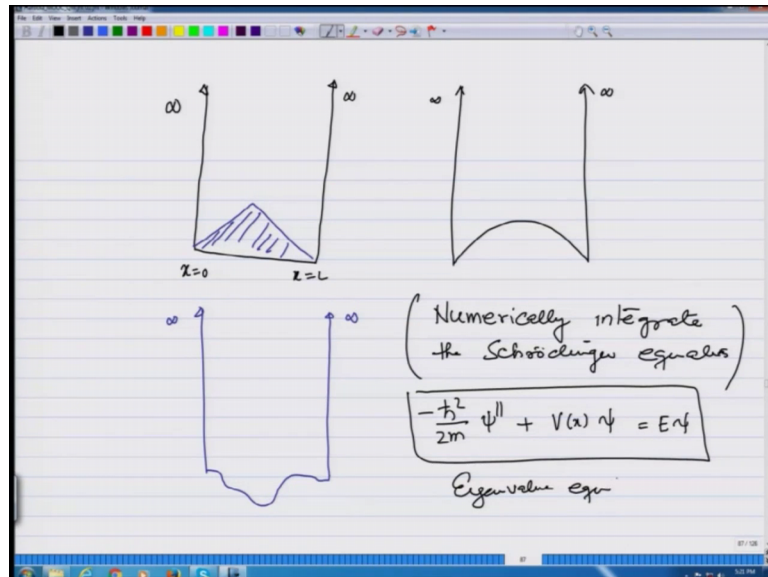 File Edit View Insert Actions Tools Help
B I
∞ ∞ ∞ ∞
x=0 x=L
∞ ∞
Numerically integrate
the Schrödinger equation
-ħ²/2m ψ'' + V(x) ψ = Eψ
Eigenvalue equ
87 / 126
87
5:21 PM